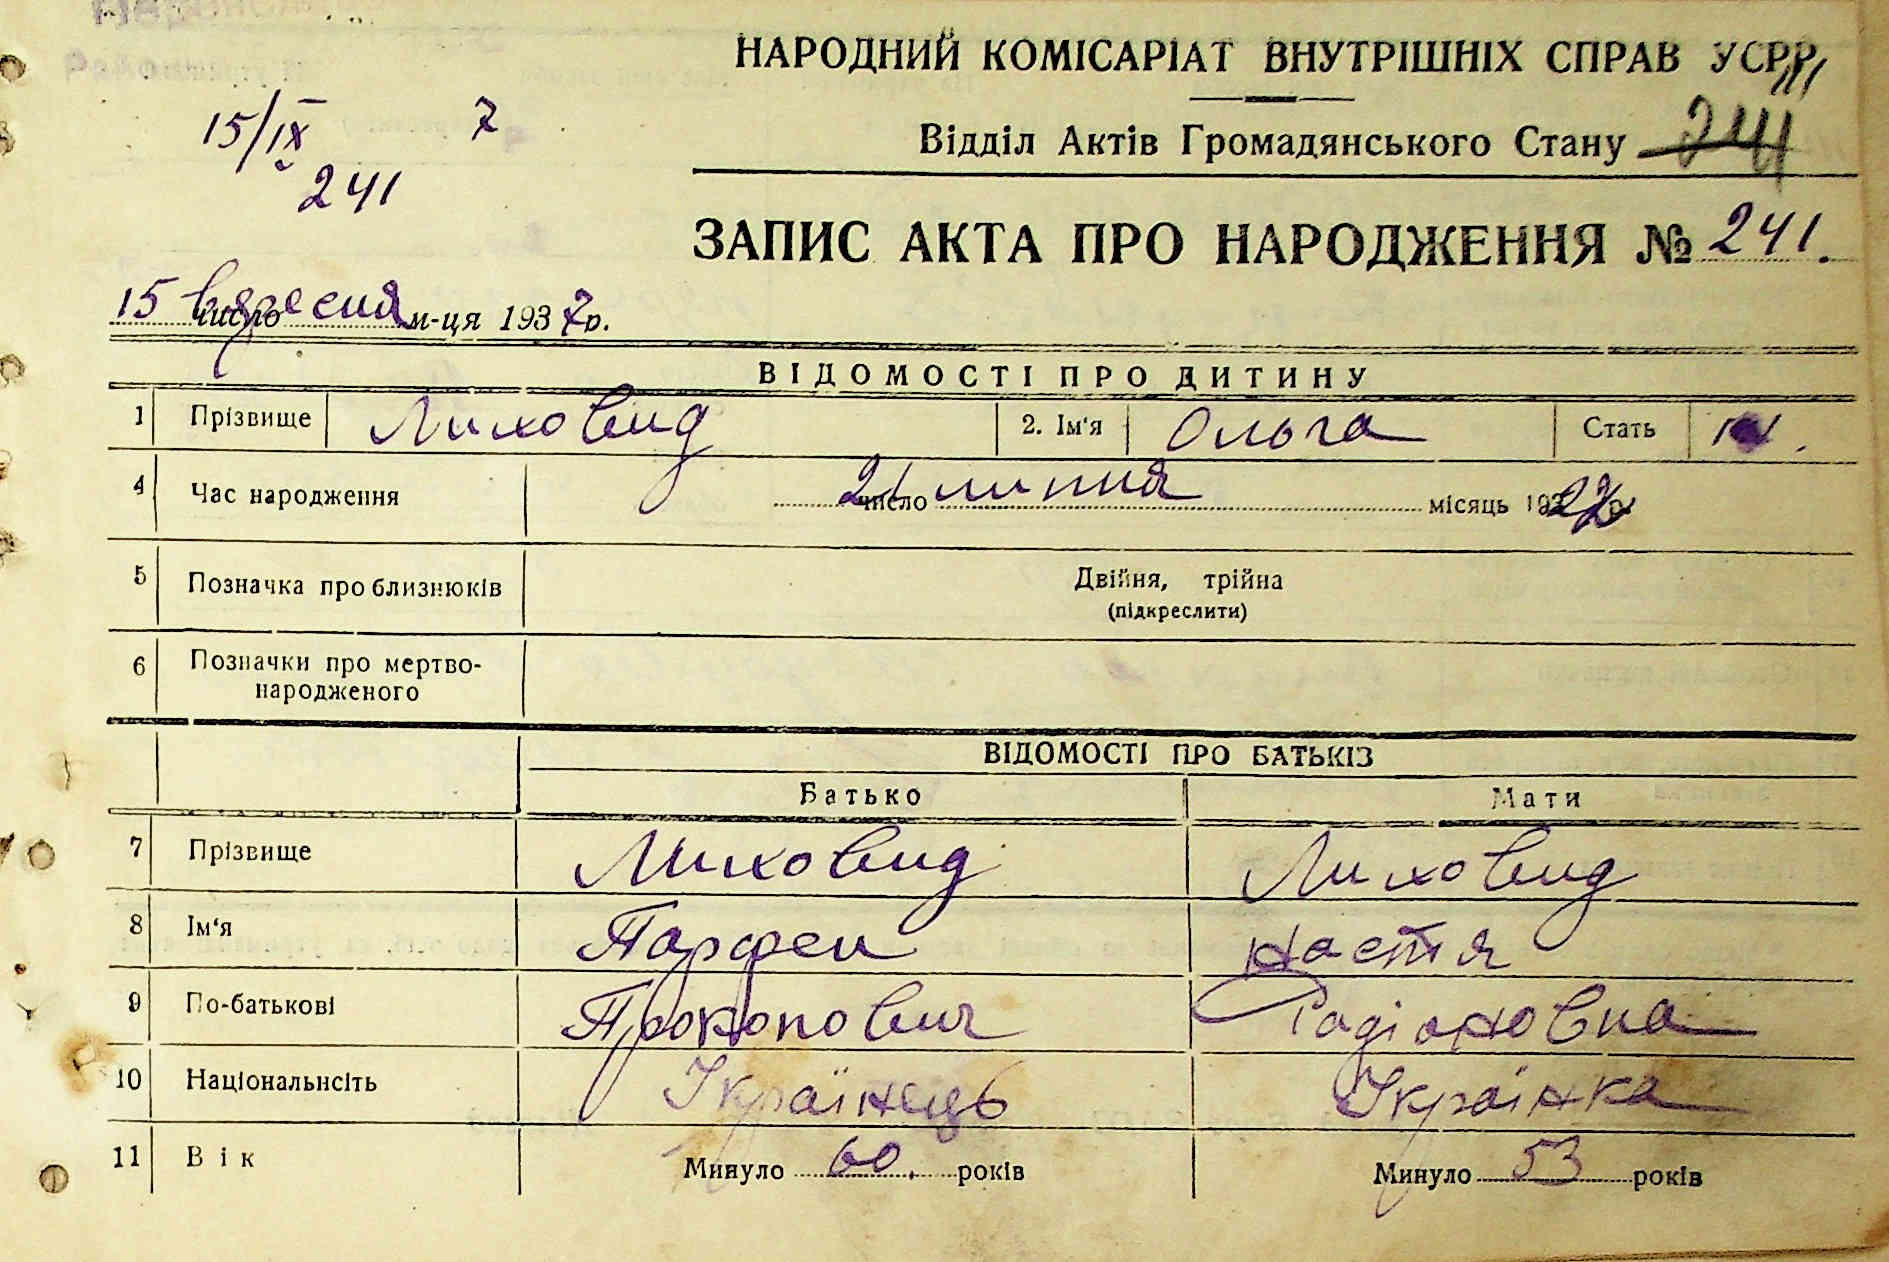 НАРОДНИЙ КОМІСАРІАТ ВНУТРІШНІХ СПРАВ УСРР
Відділ Актів Громадянського Стану 241
15/IX 7
241
ЗАПИС АКТА ПРО НАРОДЖЕННЯ № 241.
15 число вересня м-ця 1937 р.
ВІДОМОСТІ ПРО ДИТИНУ
1 Прізвище Лиховид 2. Ім'я Ольга Стать
4 Час народження 21 число липня місяць 1922 р.
5 Позначка про близнюків Двійня, трійна
(підкреслити)
6 Позначки про мертво-
народженого
ВІДОМОСТІ ПРО БАТЬКІЗ
Батько Мати
7 Прізвище Лиховид Лиховид
8 Ім'я Парфен Настя
9 По-батькові Прокопович Радіоновна
10 Національнсіть Українець Українка
11 Вік Минуло 60. років Минуло 53 років